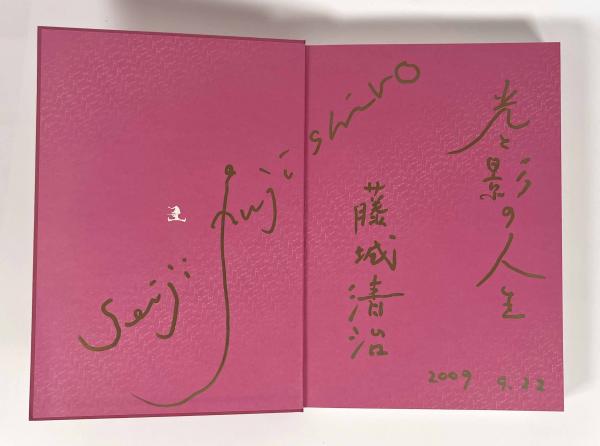 Seiji Fujishiro
光と影の人生
藤城清治
2009 9.22